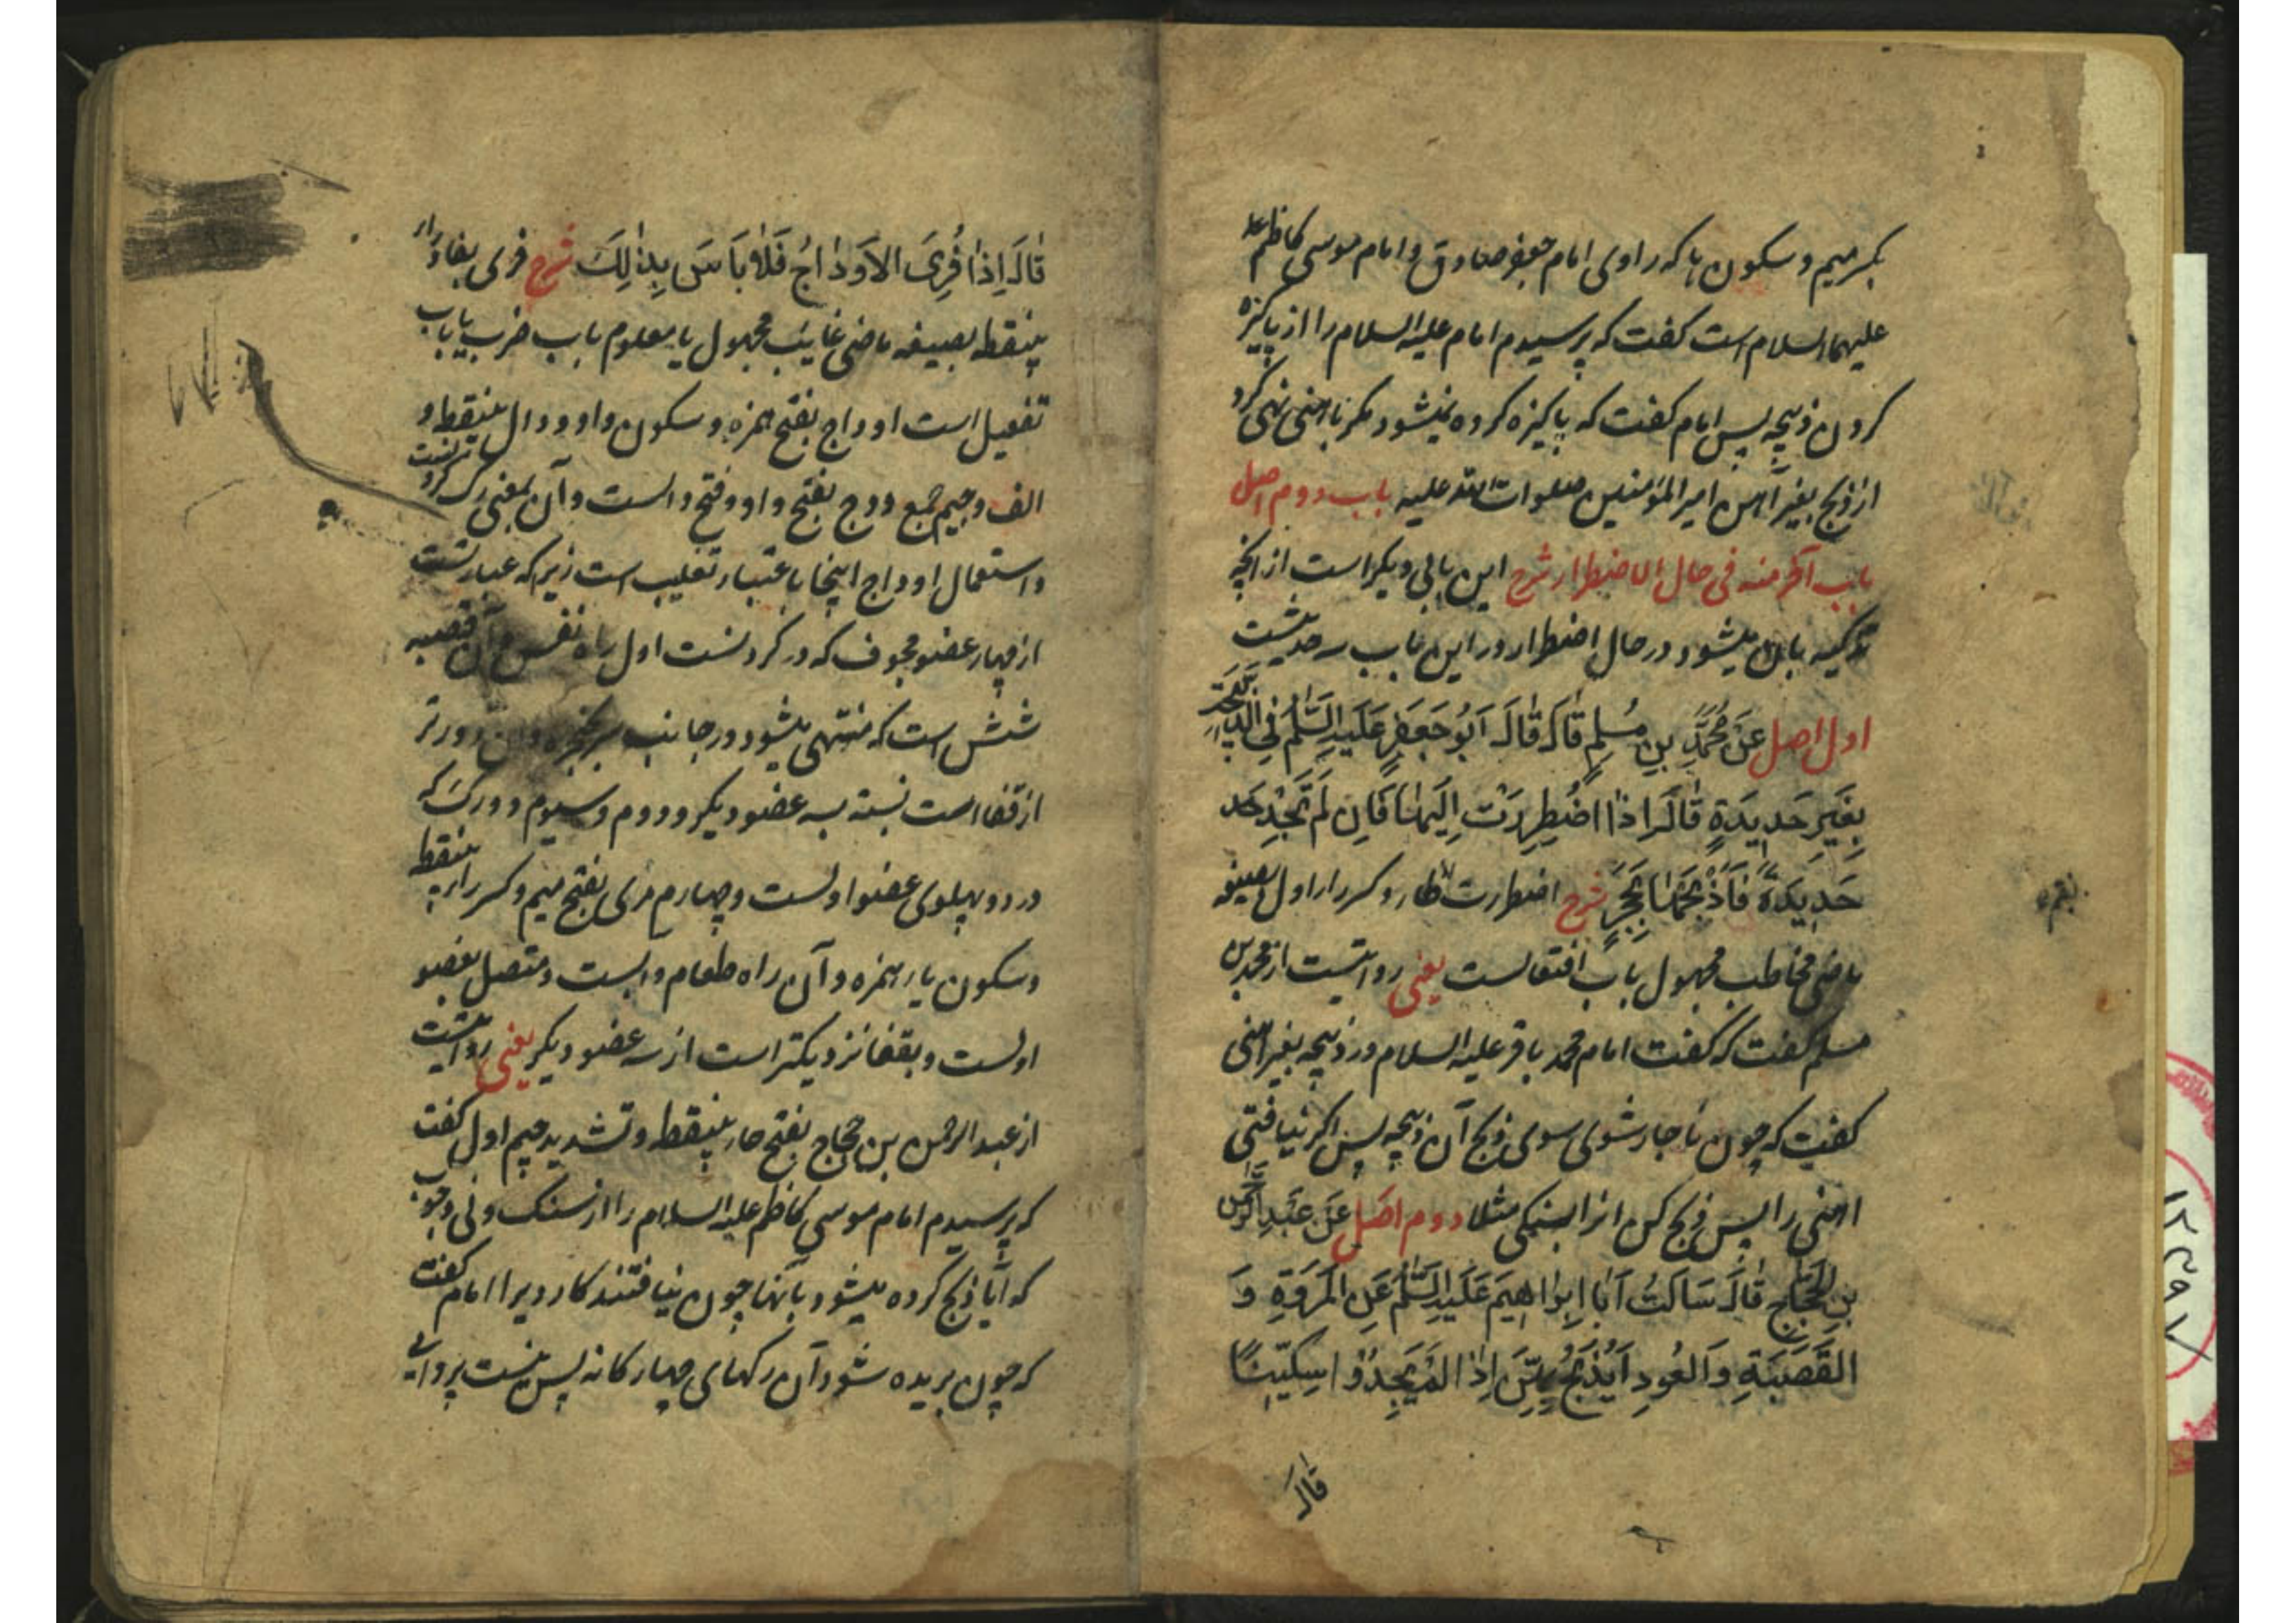 بکسر میم و سکون ها که راوی امام جعفر صادق و امام موسی کاظم
علیهما السلام است کفت که پرسیدم امام علیه السلام را از پاکیزه
کردن ذبیحه پس امام کفت که پاکیزه کرده نمیشود مکر باهنی نهی کرد
از ذبح بغیر آهن امیر المؤمنین صلوات الله علیه باب دوم اصل
باب آخر منه فی حال الاضطرار شرح این بابی دیکر است از آنچه
تذکیه بان میشود در حال اضطرار در این باب سه حدیثست
اول اصل عَنْ مُحَمَّدِ بنِ مُسْلِمٍ قَالَ قَالَ اَبُو جَعفَرٍ عَلَيهِ السَّلٰمُ فِي الذَّبِيحَةِ
بِغَيرِ حَدِيدَةٍ قَالَ اِذَا اضْطُرِرْتَ اِلَيهَا فَاِن لَم تَجِدْ
حَدِيدَةً فَاذْبَحْهَا بِحَجَرٍ شرح اضطررت بطا و کسر راء اول بصیغه
ماضی مخاطب مجهول باب افتعالست یعنی روایتست از محمد بن
مسلم کفت که کفت امام محمد باقر علیه السلام در ذبیحه بغیر آهنی
کفت که چون ناچار شوی سوی ذبح آن ذبیحه پس اکر نیافتی
آهنی را پس ذبح کن انرا بسنکی مثلا دوم اصل عَنْ عَبْدِ الرَّحْمٰنِ
بنِ الحَجَّاجِ قَالَ سَاَلتُ اَبَا اِبرَاهِيمَ عَلَيهِ السَّلٰمُ عَنِ المَروَةِ وَ
القَصَبَةِ وَ العُودِ اَيُذْبَحُ بِهِنَّ اِذَا لَم يَجِدُوا سِكّينًا
قَالَ
قَالَ اِذَا فُرِيَ الاَودَاجُ فَلَا بَاسَ بِذٰلِكَ شرح فری بفا و راء
بینقطه بصیغه ماضی غایب مجهول یا معلوم باب ضرب یا باب
تفعیل است اوداج بفتح همزه و سکون واو و دال بینقطه و
الف و جیم جمع ودج بفتح واو و فتح دالست و آن بمعنی رک کردنست
و استعمال اوداج اینجا باعتبار تغلیب است زیرا که عبارتست
از چهار عضو مجوف که در کردنست اول راه نفس و آن قصبه
شش است که منتهی میشود در جانب سر بحنجره و آن دورتر
از قفا است نسبت به سه عضو دیکر و دوم و سیوم دو رک که
در دو پهلوی عضو اولست و چهارم مری بفتح میم و کسر راء بینقطه
و سکون یا و همزه و آن راه طعام و ابست و متصل بعضو
اولست و بقفا نزدیکتر است از سه عضو دیکر یعنی روایتست
از عبد الرحمن بن حجاج بفتح حاء بینقطه و تشدید جیم اول کفت
که پرسیدم امام موسی کاظم علیه السلام را از سنک و نی و چوب
که آیا ذبح کرده میشود بآنها چون نیافتند کاردیرا امام کفت
که چون بریده شود آن رکهای چهارکانه پس نیست پروایی
۱۲۳۹۷